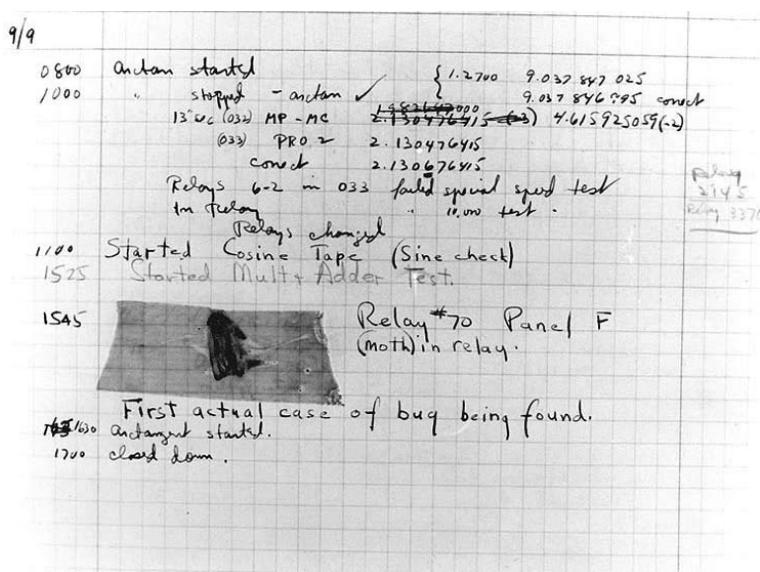 9/9
0800 Antan started
1000 " stopped - antan ✓ { 1.2700 9.037 847 025
9.037 846 995 conect
13"uc (032) MP - MC 1.982647000 2.130476415 (-3) 4.615925059(-2)
(033) PRO 2 2.130476415
conect 2.130676415
Relays 6-2 in 033 failed special speed test
In Relay " 10,000 test .
Relays changed
1100 Started Cosine Tape (Sine check)
1525 Started Mult + Adder Test.
1545 Relay #70 Panel F
(moth) in relay.
First actual case of bug being found.
1630 antangent started.
1700 closed down .
Relay
2145
Relay 3370